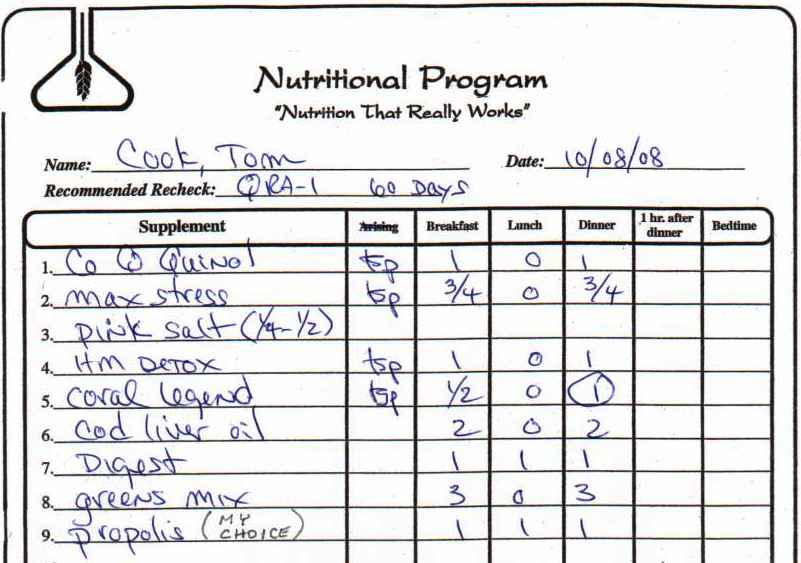 Nutritional Program
"Nutrition That Really Works"
Name: Cook, Tom Date: 10/08/08
Recommended Recheck: QRA-1 60 Days
Supplement Arising Breakfast Lunch Dinner 1 hr. after dinner Bedtime
1. Co Q Quinol tsp 1 0 1
2. max stress tsp 3/4 0 3/4
3. pink salt (1/4-1/2)
4. HM Detox tsp 1 0 1
5. coral legend tsp 1/2 0 1
6. Cod liver oil 2 0 2
7. Digest 1 1 1
8. greens mix 3 0 3
9. propolis (MY CHOICE) 1 1 1